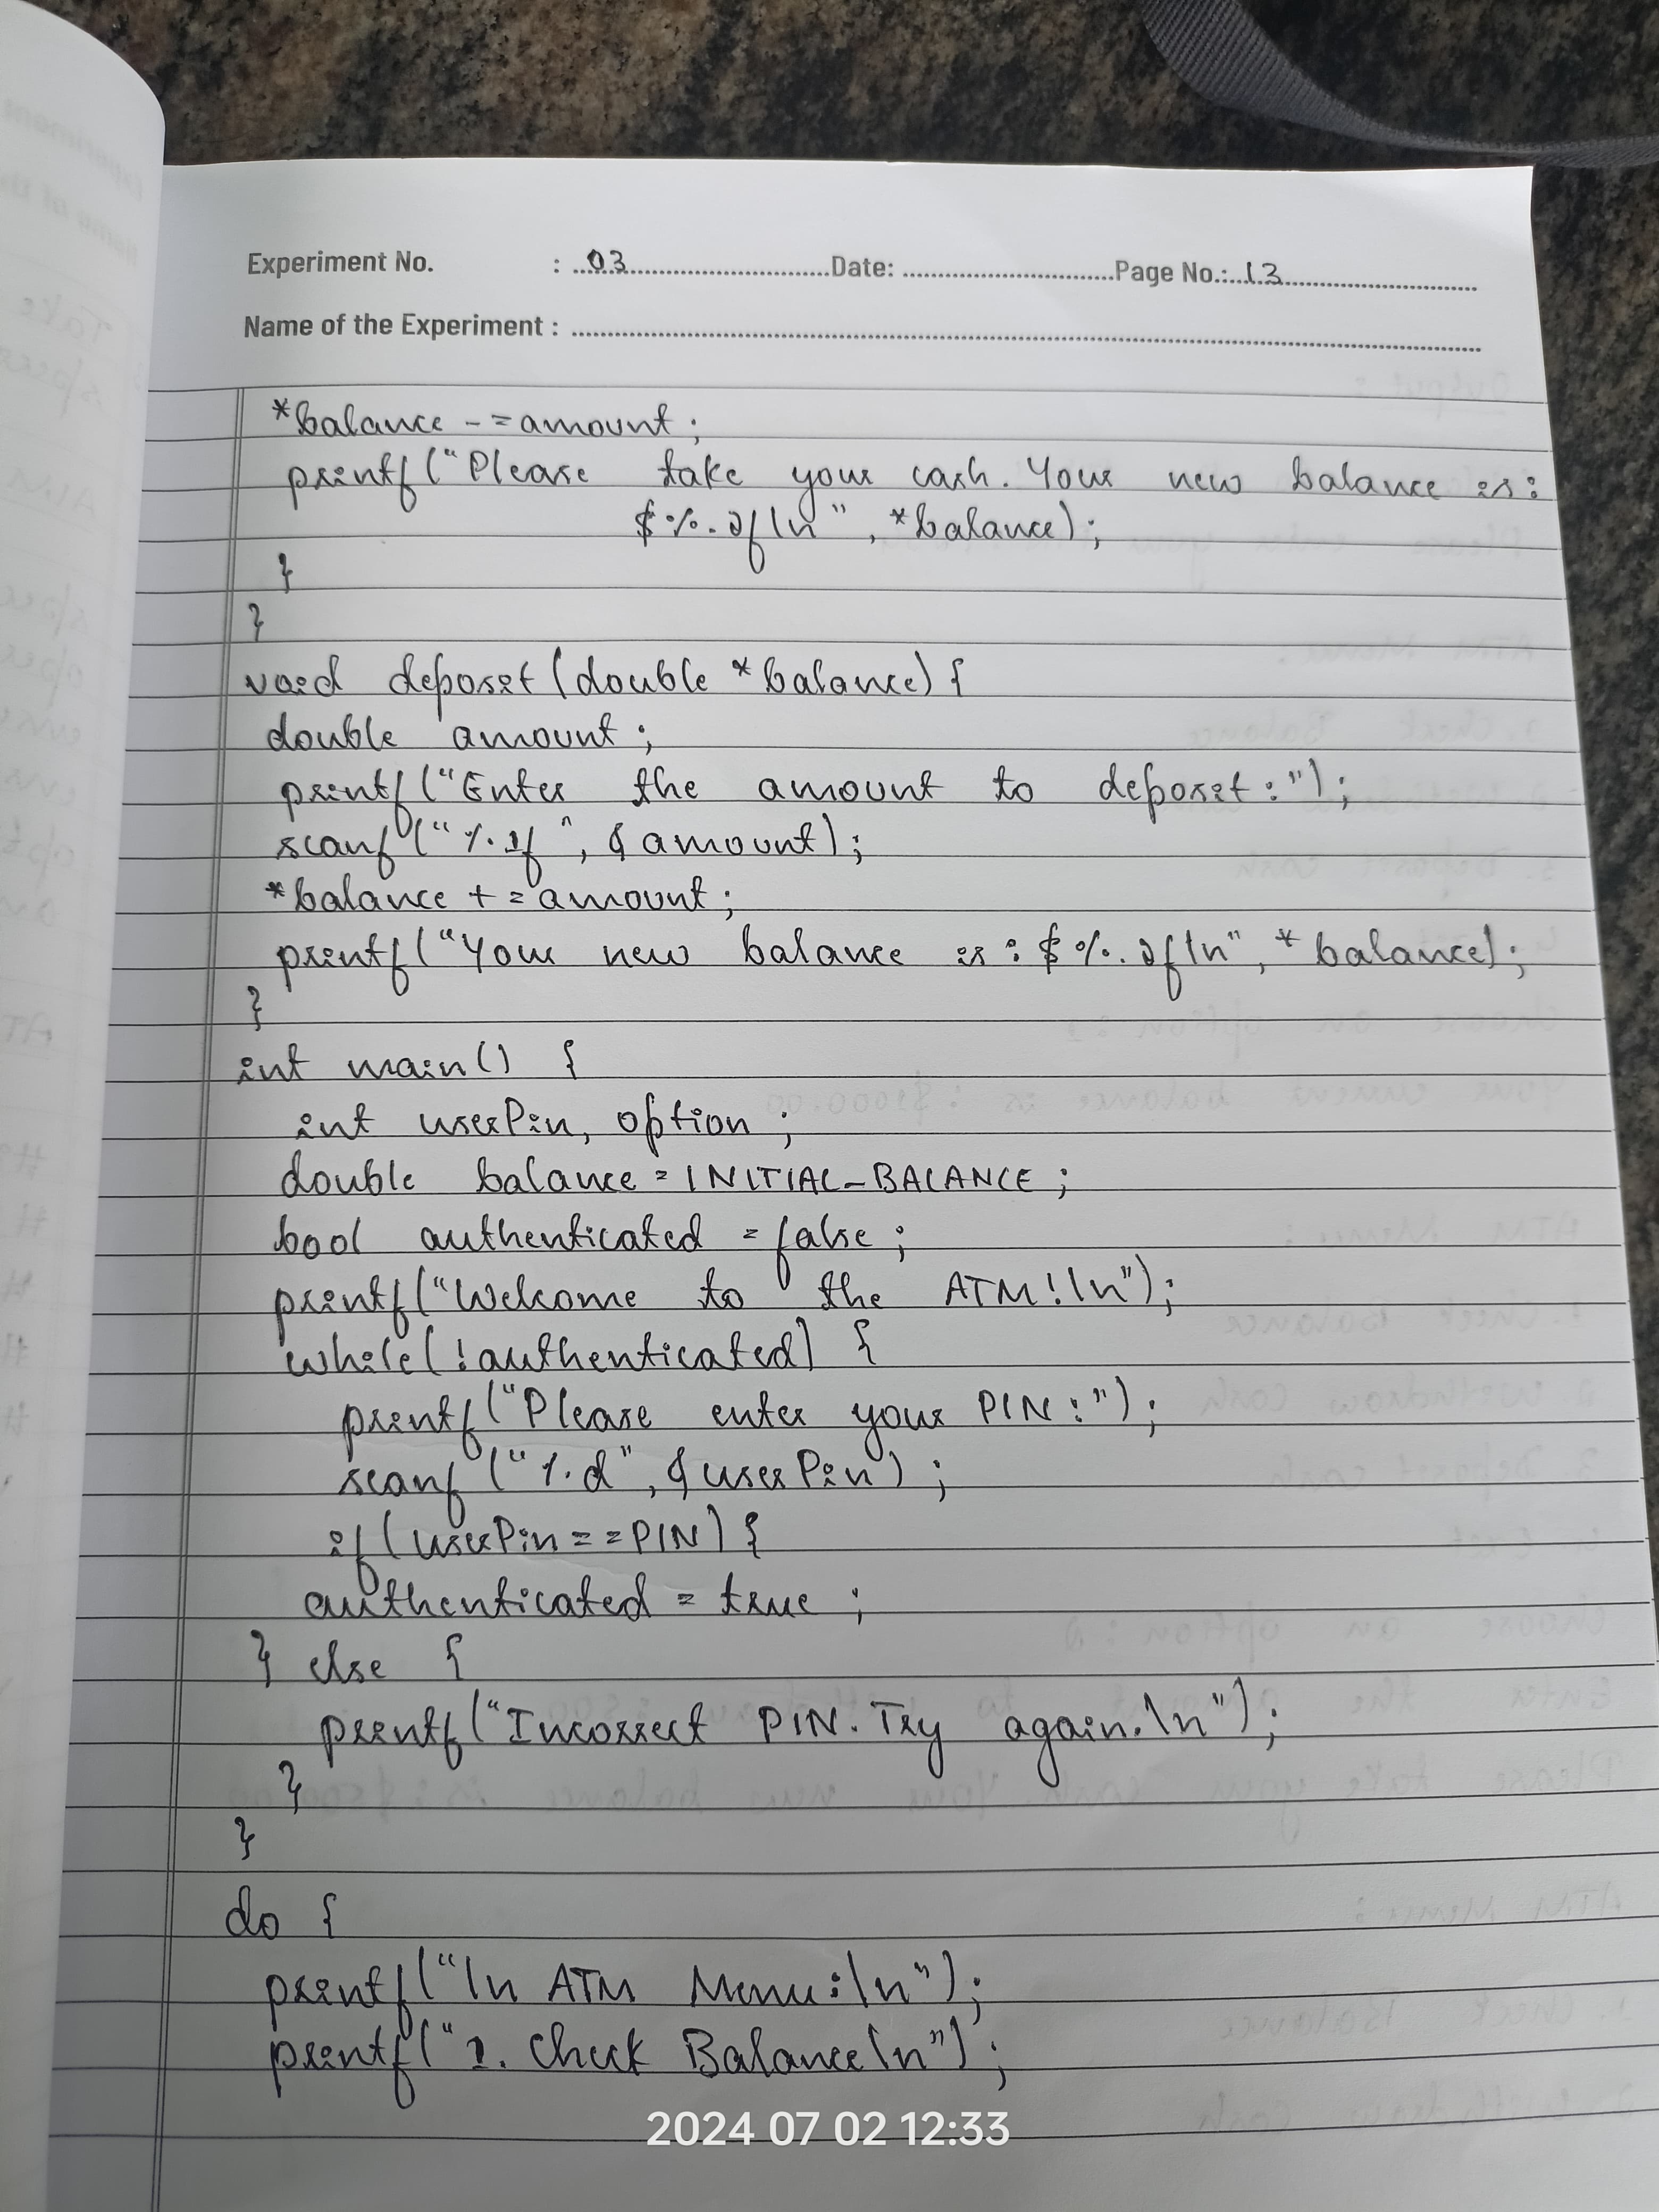 Experiment No. : 03 Date: Page No.: 13
Name of the Experiment :
*balance -= amount;
printf("Please take your cash. Your new balance is:
$%.2f\n", *balance);
}
}
void deposit(double *balance) {
double amount;
printf("Enter the amount to deposit:");
scanf("%lf", &amount);
*balance += amount;
printf("Your new balance is: $%.2f\n", *balance);
}
int main() {
int userPin, option;
double balance = INITIAL_BALANCE;
bool authenticated = false;
printf("Welcome to the ATM!\n");
while(!authenticated) {
printf("Please enter your PIN:");
scanf("%d", &userPin);
if(userPin==PIN) {
authenticated = true;
} else {
printf("Incorrect PIN. Try again.\n");
}
}
do {
printf("\n ATM Menu:\n");
printf("1. Check Balance\n");
2024 07 02 12:33